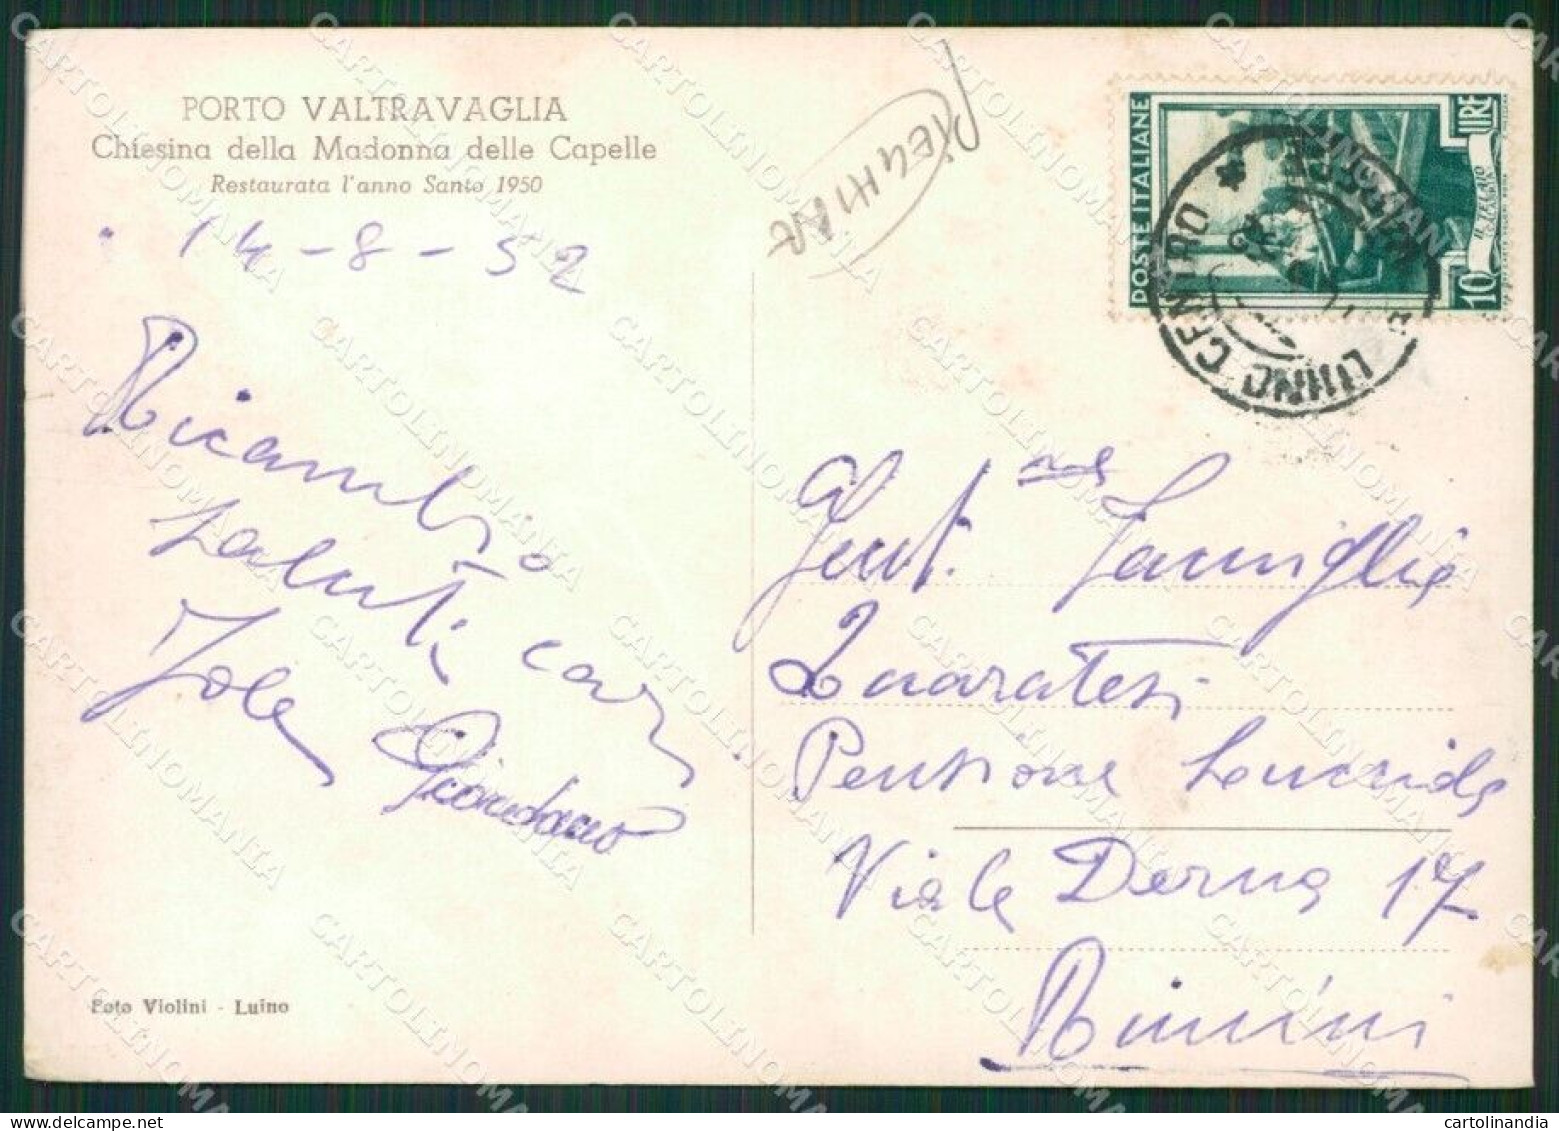 PORTO VALTRAVAGLIA
Chiesina della Madonna delle Capelle
Restaurata l'anno Santo 1950
14-8-52
Ricambio
saluti cari
Jole Giordano
Foto Violini - Luino
POSTE ITALIANE
LIRE
10
LUINO CENTRO
Gent. Famiglia
Pensione
Viale Derna 17
Rimini
CARTOLINOMANIA
cartolinandia